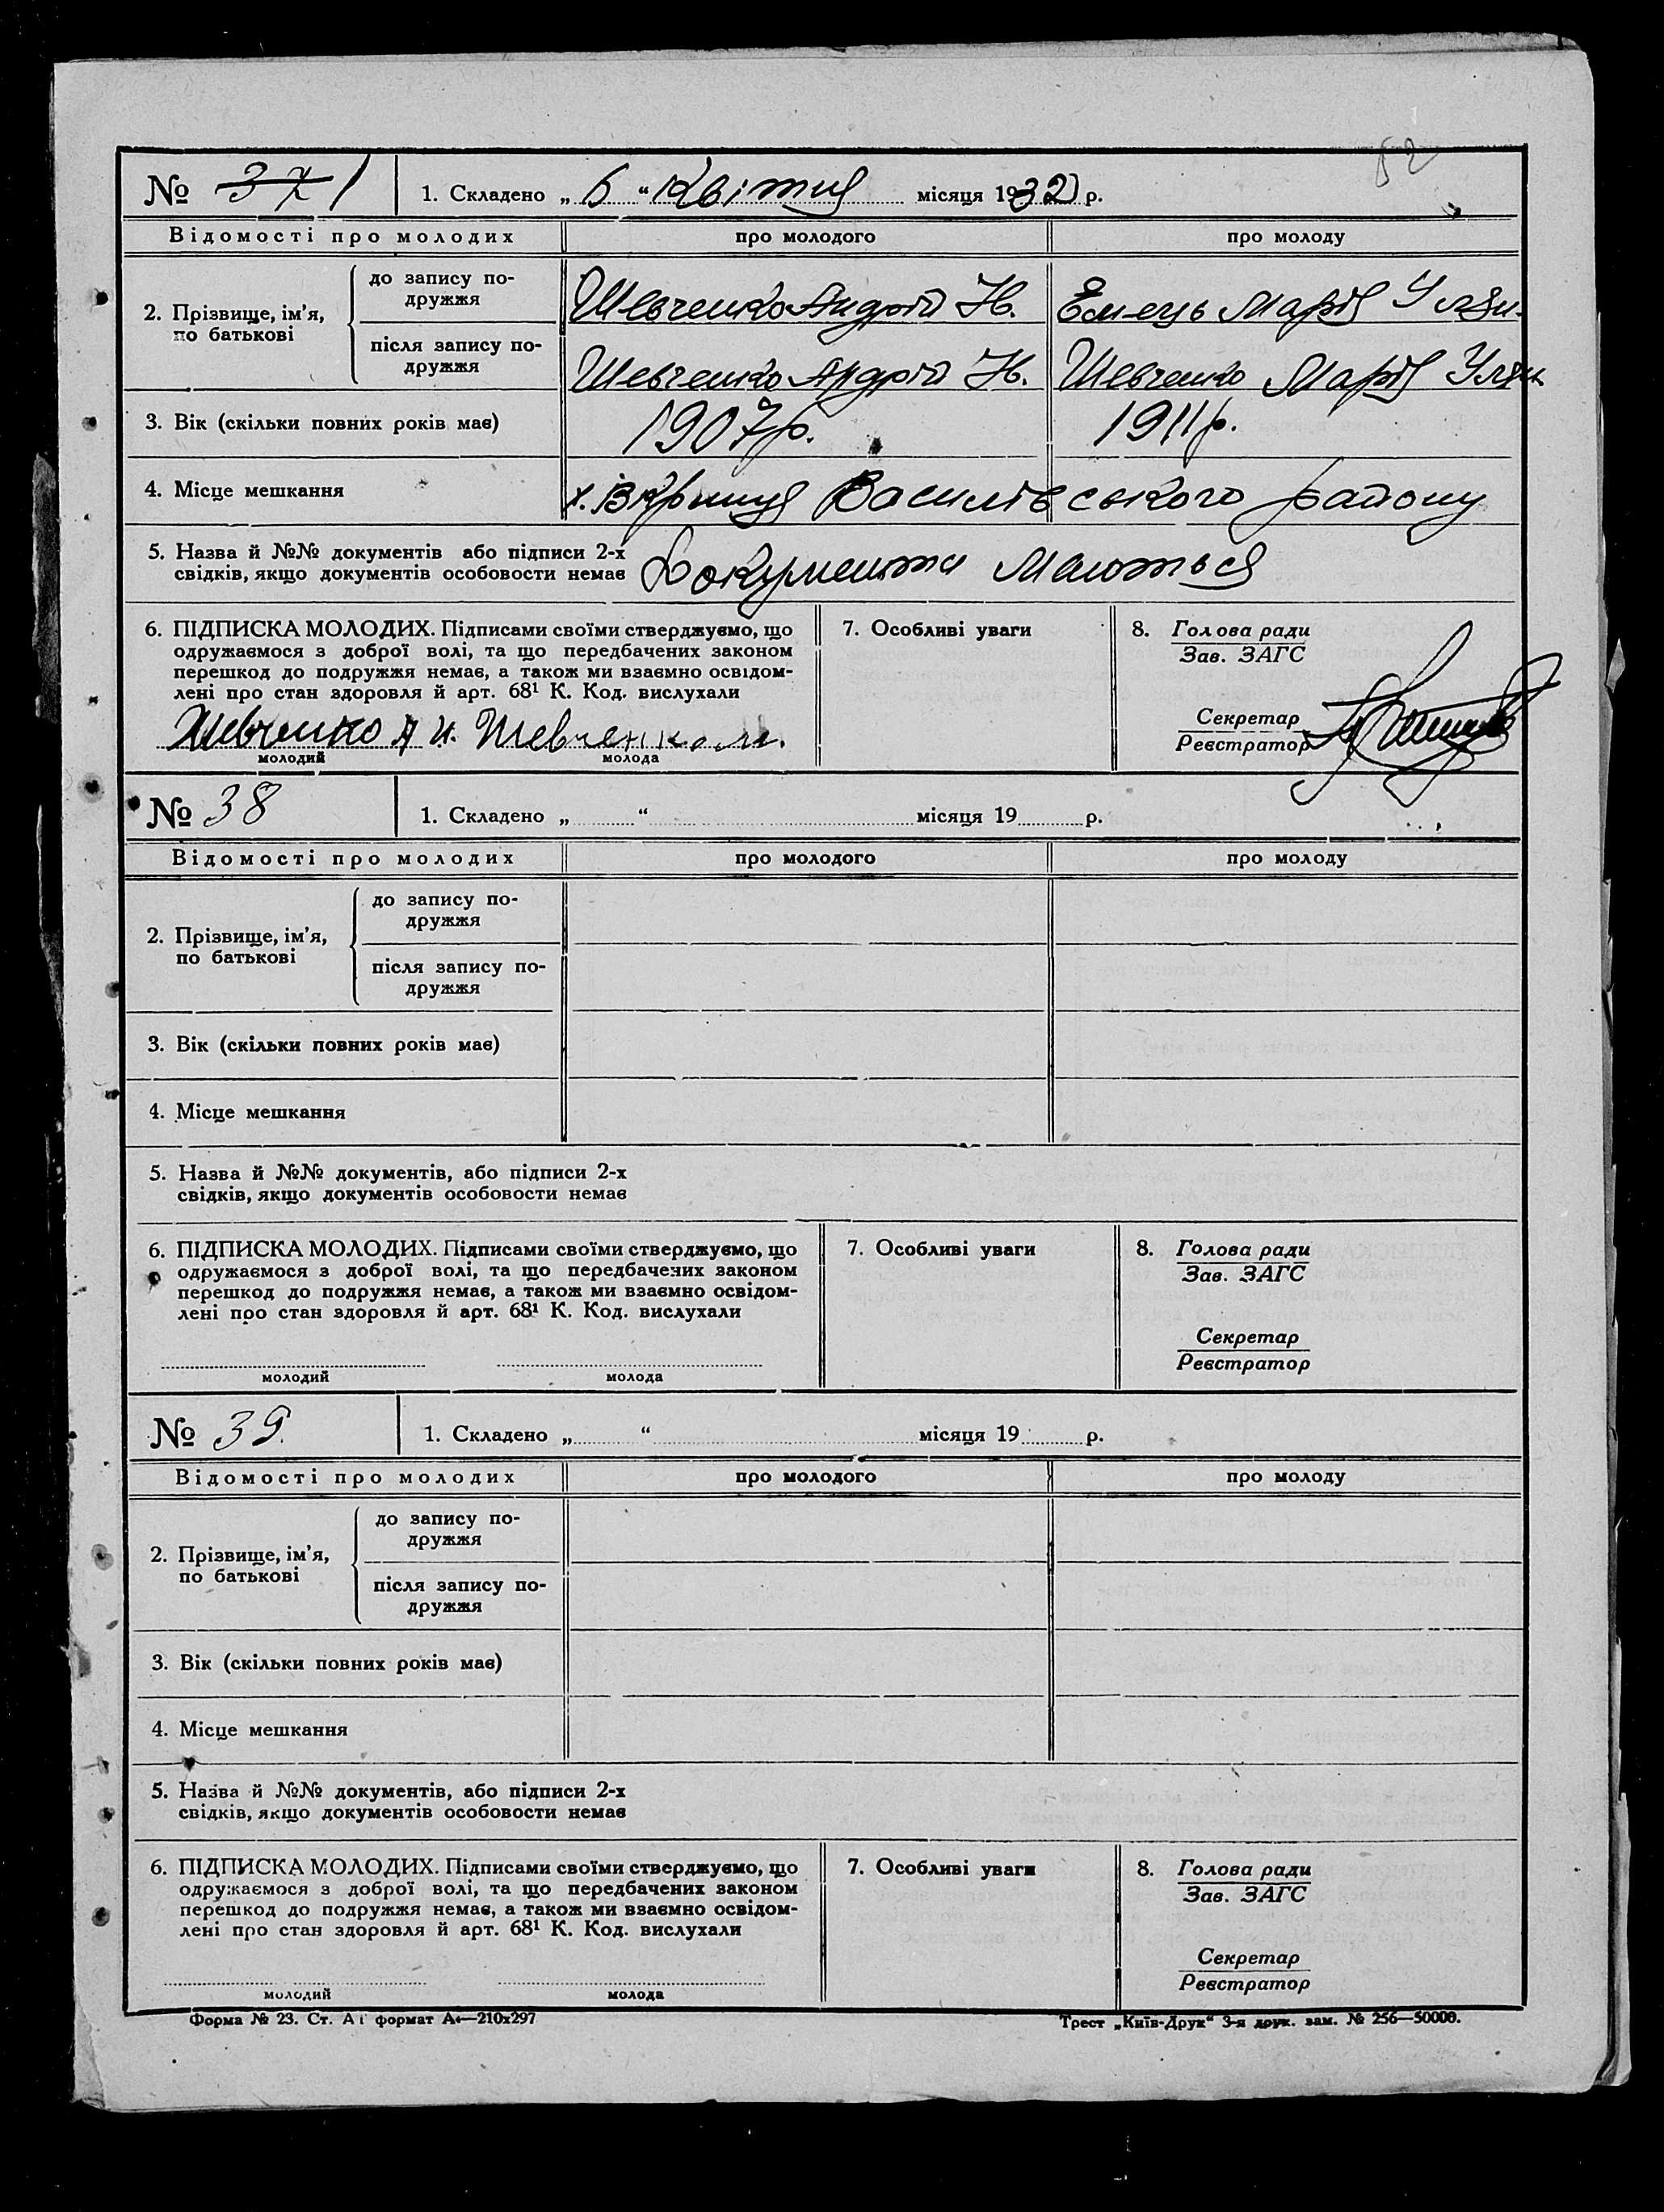 52
№ 37 1
1. Складено „ 6 “ Квітня місяця 1932 р.
Відомості про молодих про молодого про молоду
2. Прізвище, ім’я, по батькові
до запису подружжя
Шевченко Андрій Н. Емець Марія Улян.
після запису подружжя
Шевченко Андрій Н. Шевченко Марія Улян
3. Вік (скільки повних років має) 1907р. 1911р.
4. Місце мешкання х. Василівського району
5. Назва й №№ документів або підписи 2-х
свідків, якщо документів особовости немає Документи Маються
6. ПІДПИСКА МОЛОДИХ. Підписами своїми стверджуємо, що
одружаємося з доброї волі, та що передбачених законом
перешкод до подружжя немає, а також ми взаємно освідом-
лені про стан здоровля й арт. 68¹ К. Код. вислухали
Шевченко А Н. Шевченко М.
молодий молода
7. Особливі уваги
8. Голова ради
Зав. ЗАГС
Секретар
Реєстратор
№ 38
1. Складено „ “ місяця 19 р.
Відомості про молодих про молодого про молоду
2. Прізвище, ім’я,
по батькові
до запису по-
дружжя
після запису по-
дружжя
3. Вік (скільки повних років має)
4. Місце мешкання
5. Назва й №№ документів, або підписи 2-х
свідків, якщо документів особовости немає
6. ПІДПИСКА МОЛОДИХ. Підписами своїми стверджуємо, що
одружаємося з доброї волі, та що передбачених законом
перешкод до подружжя немає, а також ми взаємно освідом-
лені про стан здоровля й арт. 68¹ К. Код. вислухали
молодий молода
7. Особливі уваги
8. Голова ради
Зав. ЗАГС
Секретар
Реєстратор
№ 39.
1. Складено „ “ місяця 19 р.
Відомості про молодих про молодого про молоду
2. Прізвище, ім’я,
по батькові
до запису по-
дружжя
після запису по-
дружжя
3. Вік (скільки повних років має)
4. Місце мешкання
5. Назва й №№ документів, або підписи 2-х
свідків, якщо документів особовости немає
6. ПІДПИСКА МОЛОДИХ. Підписами своїми стверджуємо, що
одружаємося з доброї волі, та що передбачених законом
перешкод до подружжя немає, а також ми взаємно освідом-
лені про стан здоровля й арт. 68¹ К. Код. вислухали
молодий молода
7. Особливі уваги
8. Голова ради
Зав. ЗАГС
Секретар
Реєстратор
Форма № 23. Ст. А формат А4—210х297 Трест „Київ-Друк“ 3-я друк. зам. № 256—50000.